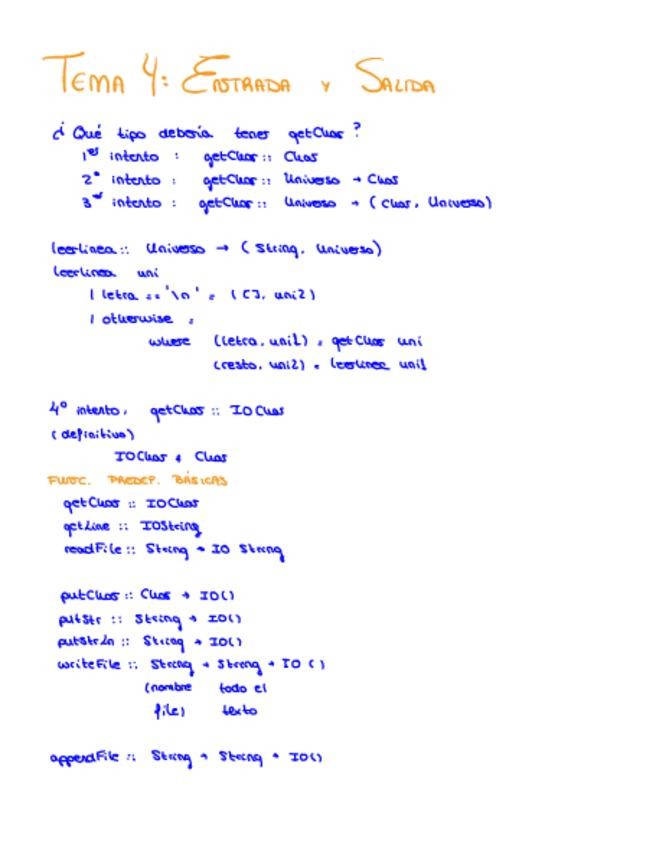 TEMA 4: ENTRADA Y SALIDA
¿Qué tipo debería tener getChar?
1er intento : getChar :: Char
2º intento : getChar :: Universo → Char
3er intento : getChar :: Universo → (Char, Universo)
leerlinea :: Universo → (String, Universo)
leerlinea uni
| letra == '\n' = ([], uni2)
| otherwise =
where (letra, uni1) = getChar uni
(resto, uni2) = leerlinea uni1
4º intento, getChar :: IOChar
(definitivo)
IOChar ≠ Char
FUNC. PREDEF. BÁSICAS
getChar :: IOChar
getLine :: IOString
readFile :: String → IO String
putChar :: Char → IO()
putStr :: String → IO()
putStrLn :: String → IO()
writeFile :: String → String → IO ()
(nombre todo el
file) texto
appendFile :: String → String → IO()